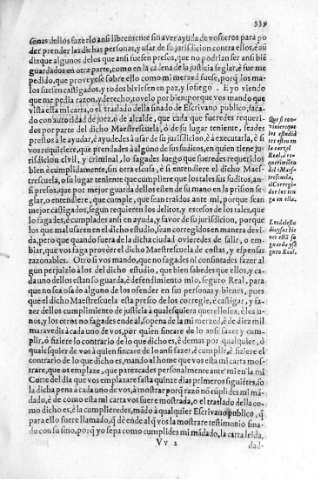 339
sonas dellos fazello ansi libremente sin aver ayuda de vosotros para po
der prender las dichas personas, y usar de su jurisdicion contra ellos, è aũ
diz que algunos delos que ansi fuessen presos, que no podriã ser ansi biẽ
guardados en otra parte, como en la cadena de la justicia seglar, è fue me
pedido, que proveyesse sobre ello como mi merced fuese, porq̃ los ma
los fuessen castigados, y todos biviessen en paz, y sosiego. E yo viendo
que me pedia razon, y derecho, tovelo por bien, porque vos mando que
vista esta mi carta, o el traslado della sinado de Escrivano publico, saca-
do con autoridad de juez, ò de alcalde, que cada que fueredes requeri-
dos por parte del dicho Maestrescuela, ò de su lugar teniente, seades
prestos à le ayudar, è ayudedes à usar de su jurisdicion, è à executarla, è si
vos requiriere, que prendades à alguno de sus suditos, en quien tiene ju-
risdicion civil, y criminal, lo fagades luego que fueredes requeridos
bien è cumplidamente, sin otra escusa, è si entendiere el dicho Maes
trescuela, o su lugar teniente que cumpliere que los tales sus suditos, an-
si presos, que por mejor guarda dellos esten de su mano en la prision se-
glar, o entendiere, que cumple, que sean traidos ante mi, porque sean
mejor castigados, segun requieren los delitos, y excesos de los tales, que
lo fagades, è cumplades en favor de justicia, è de su jurisdicion, porque
los que mal usaren en el dicho estudio, sean corregidos en manera devi
da, pero que quando fuera de la dicha ciudad ovieredes de salir, o em-
biar, que vos faga proveer el dicho Maestrescuela de costas, y espensas
razonables. Otro si vos mando, que no fagades ni consintades fazer al
gun perjuizio à los del dicho estudio, que bien sabedes que ellos, y ca-
da uno dellos estan so guarda, è defendimiento mio, è seguro Real, para
que no sea osado alguno de los ofender en sus personas y bienes, pues
que el dicho Maestrescuela esta presto de los corregir, è castigar, y fa-
zer dellos cumplimiento de justicia à qualesquiera querellosos, è los u-
nos, y los otros no fagades ende al, so pena de la mi merced, è de diez mil
maravedis à cada uno de vos, por quien fincare de lo ansi fazer y cum-
plir, ò fiziere lo contrario de lo que dicho es, è demas por qualquier, ò
qualesquier de vos à quien fincare de lo ansi fazer, è cumplir, è fiziere el
contrario de lo que dicho es, mando al home que vos esta mi carta mos-
trare, que os emplaze, que parezcades personalmente ante mi en la mi
Corte del dia que vos emplazare fasta quinze dias primeros siguiẽtes, so
la dicha pena à cada uno de vos, à mostrar porq̃ razõ nõ cũplides mi mã-
dado, è de como esta mi carta vos fuere mostrada, o el traslado della co-
mo dicho es, è la cumplieredes, mãdo à qualquier Escrivano publico, q̃
para ello fuere llamado, q̃ dè ende al q̃ vos la mostrare testimonio sina-
do con su sino, porq̃ yo sepa como cumplides mi mãdado, la carta leida,
Vv 2
da-